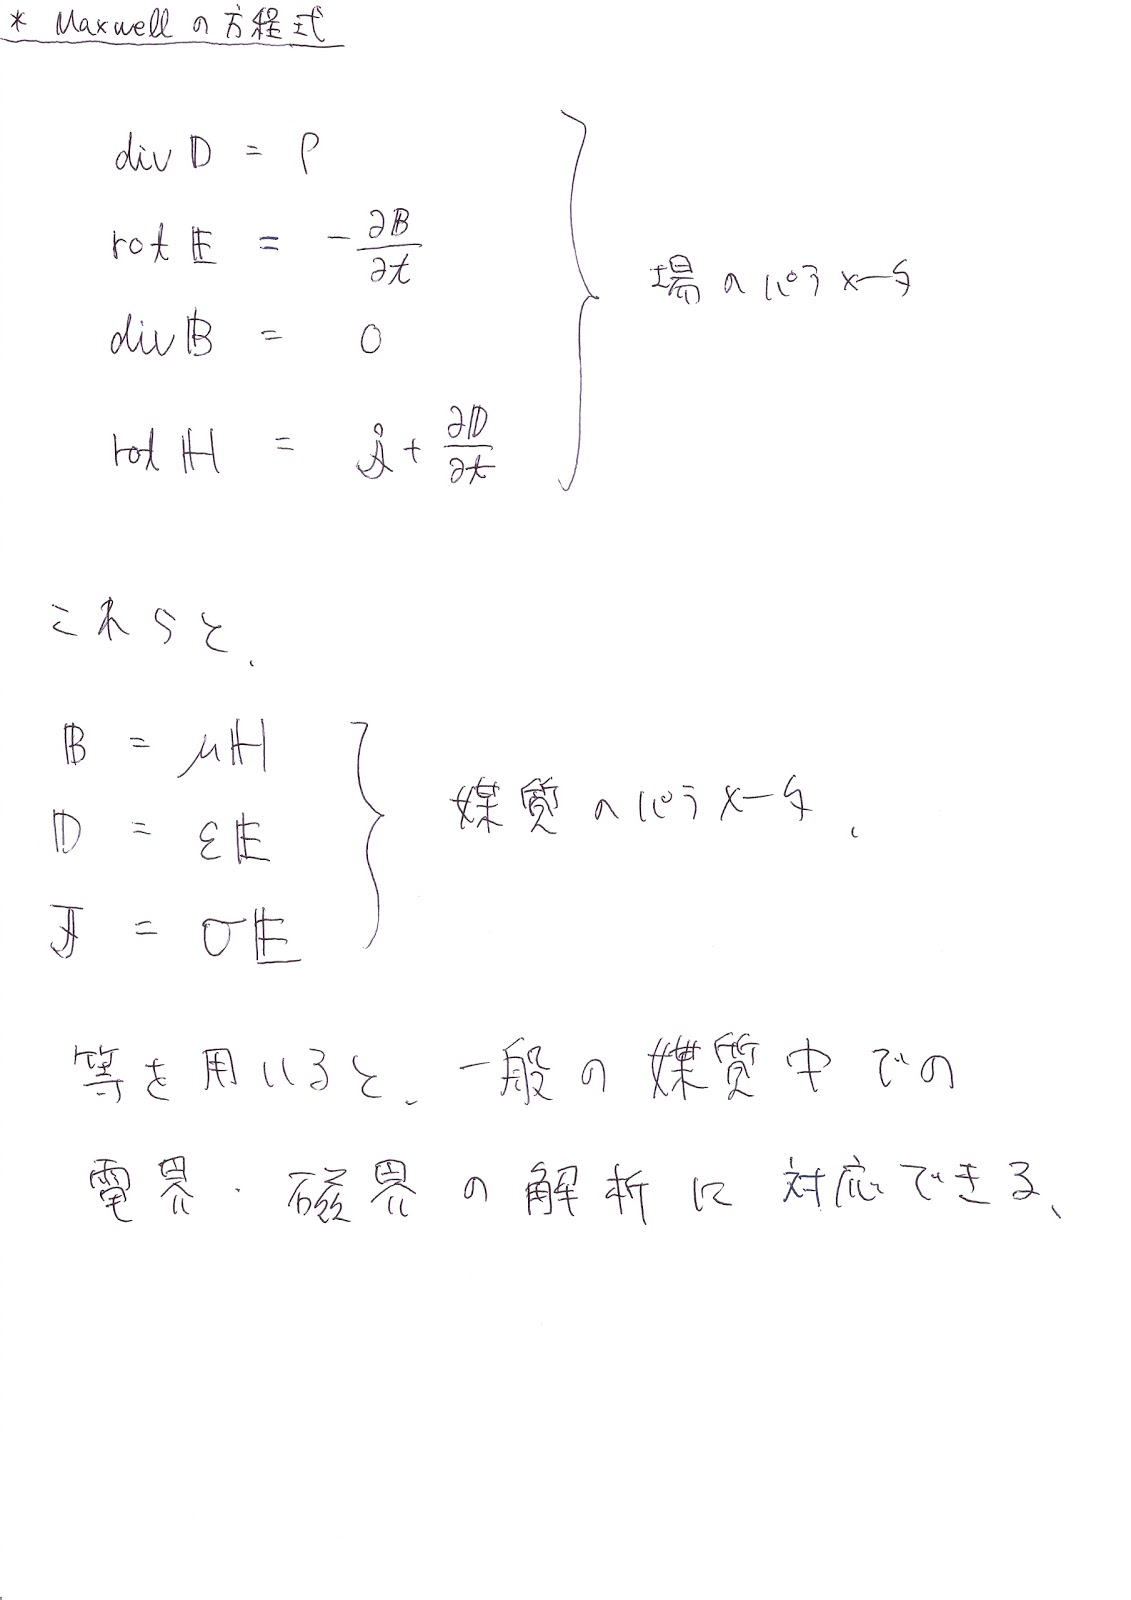 * Maxwellの方程式
div𝔻 = ρ
rot𝔼 = -∂𝔹/∂t
div𝔹 = 0
rotℍ = 𝕛 + ∂𝔻/∂t
場のパラメータ
これらと、
𝔹 = μℍ
𝔻 = ε𝔼
𝕁 = σ𝔼
媒質のパラメータ、
等を用いると、一般の媒質中での
電界・磁界の解析に対応できる、